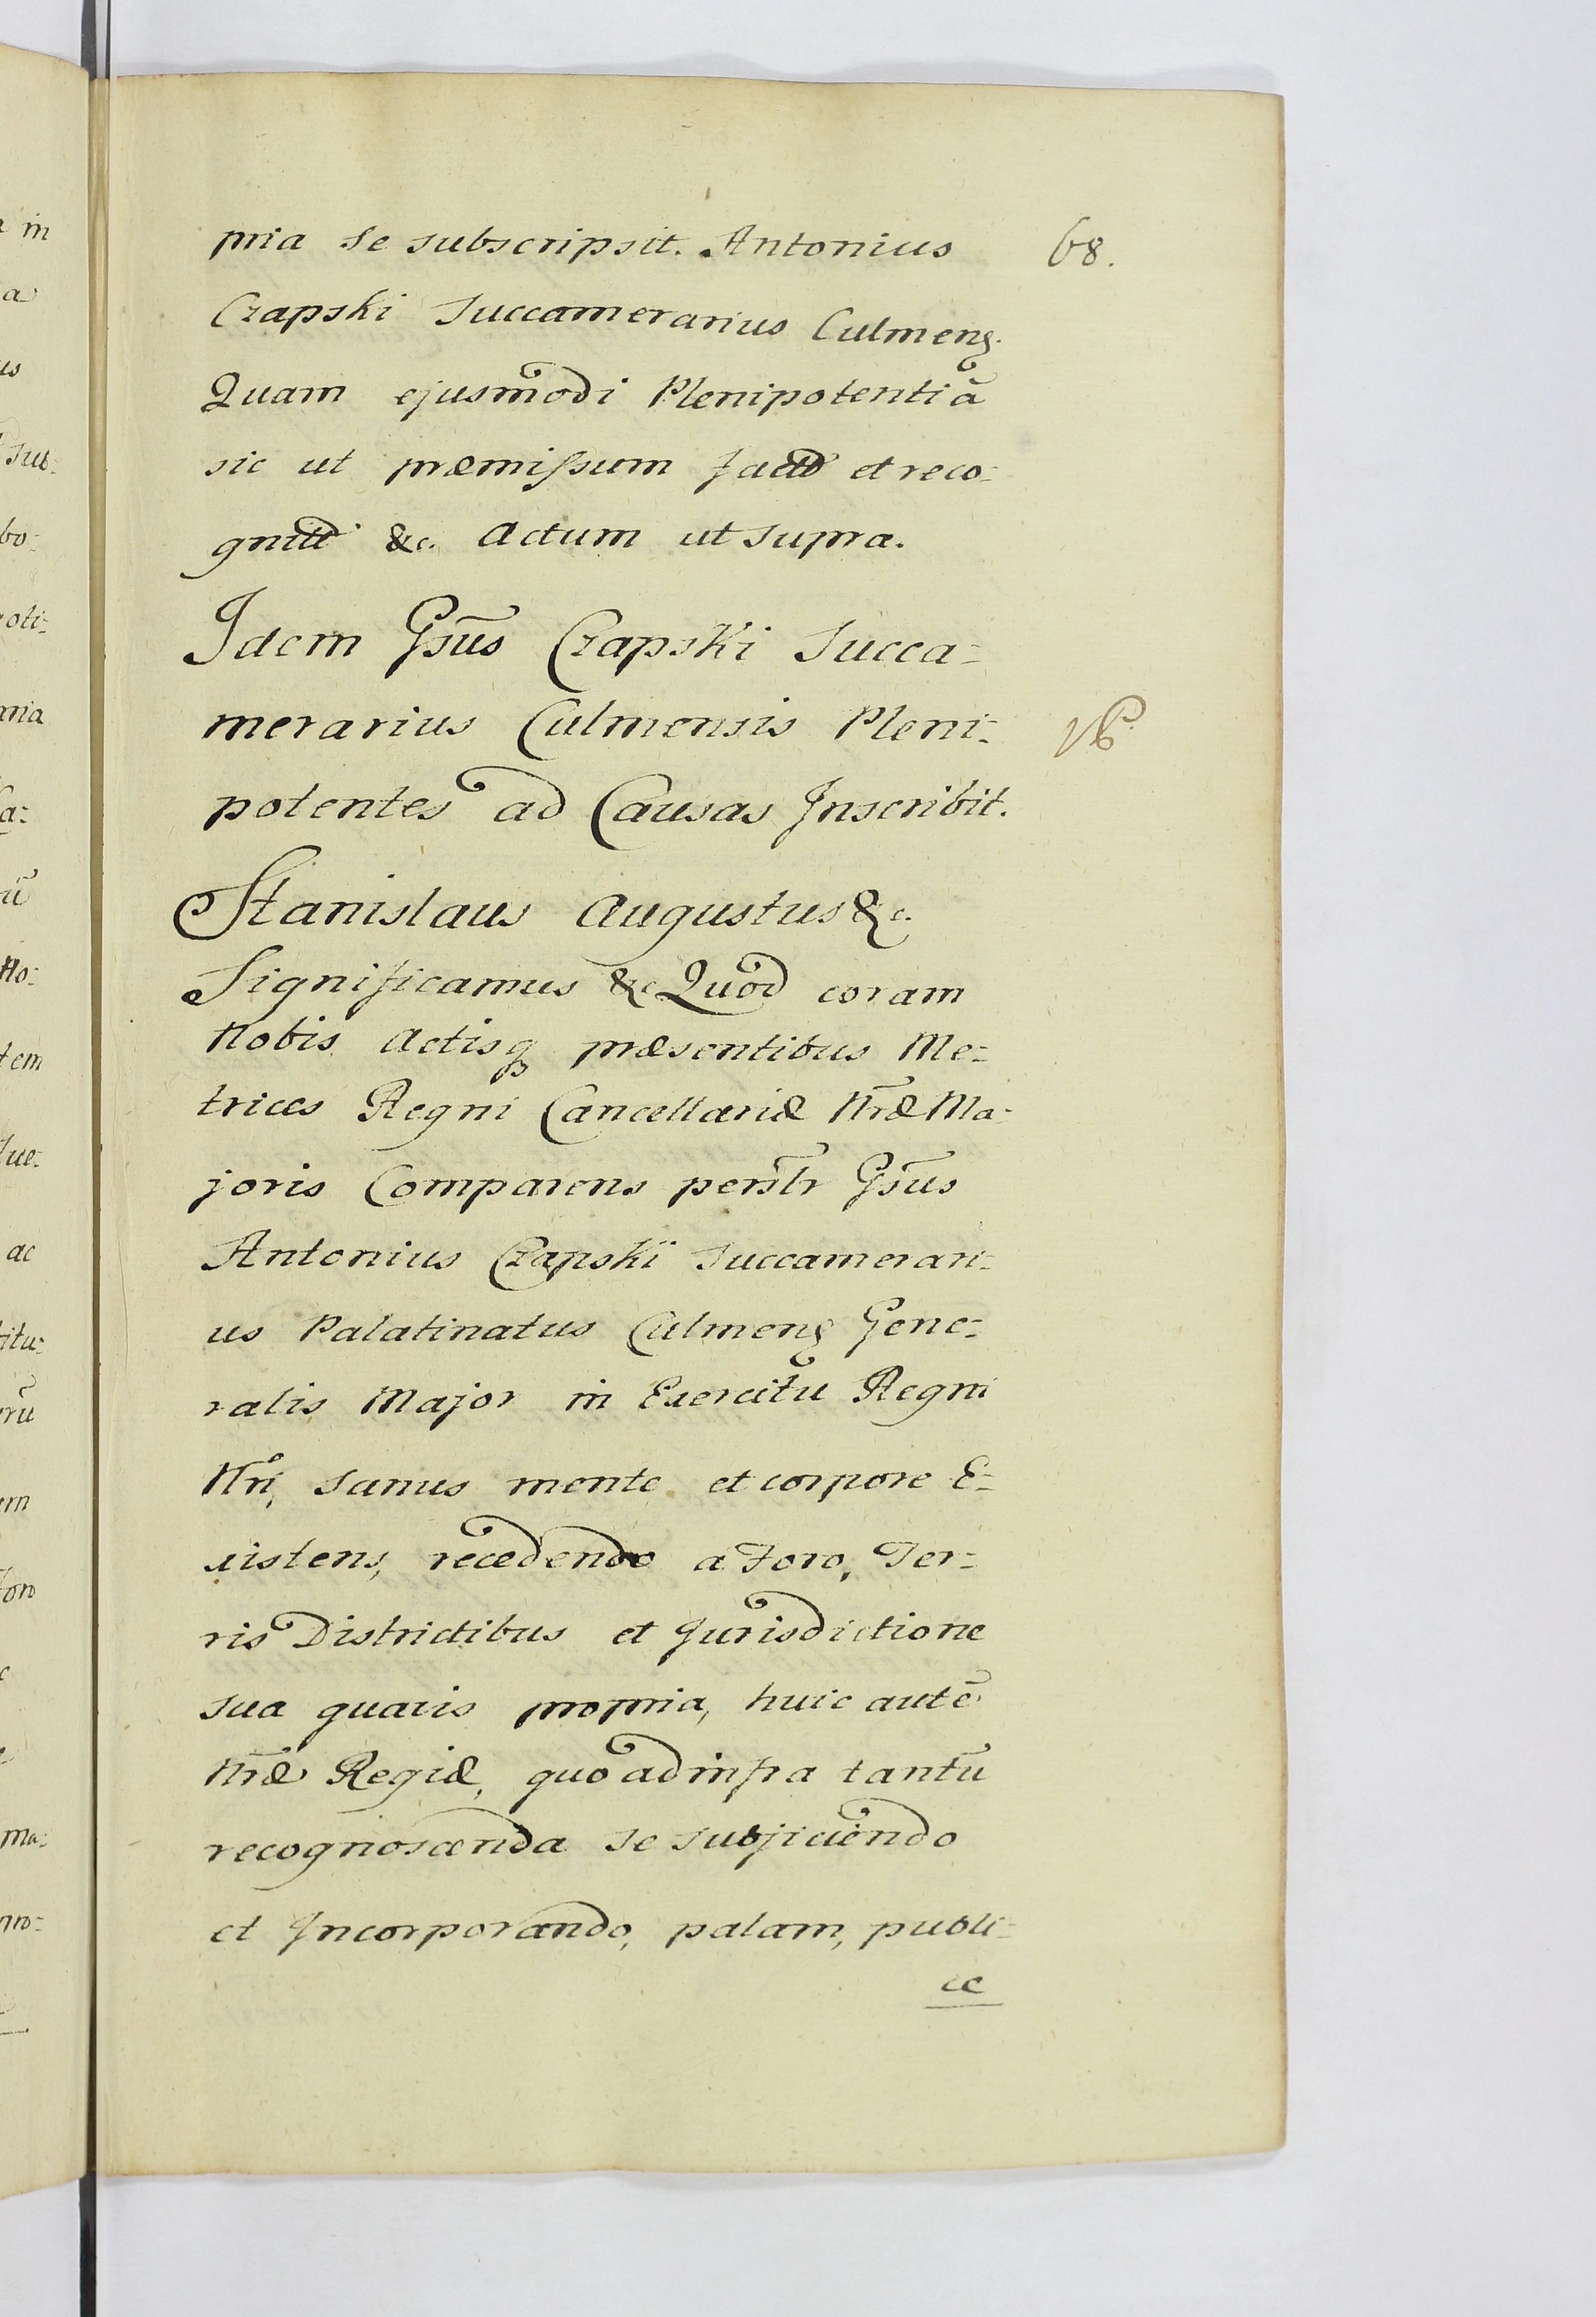 pria se subscripsit. Antonius
68.
Czapski Succamerarius Culmens.
Quam ejusmodi Plenipotentiã
sic ut præmissum factd et reco-
gnitd &c. Actum ut supra.
Idem Gsũs Czapski Succa-
merarius Culmensis Pleni-
potentes ad Causas Inscribit.
Stanislaus Augustus &c.
Significamus &c Quod coram
Nobis Actisq præsentibus Me-
trices Regni Cancellariæ Nræ Ma-
joris Comparens persltr Gsũs
Antonius Czapski Succamerari-
us Palatinatus Culmens Gene-
ralis Major in Exercitu Regni
Nri, sanus mente et corpore E-
xistens, recedendo a Foro, Ter-
ris Districtibus et Jurisdictione
sua quavis propria, huic autẽ
Nræ Regiæ, quo ad infra tantũ
recognoscenda se subjiciendo
et Incorporando, palam, publi-
ce